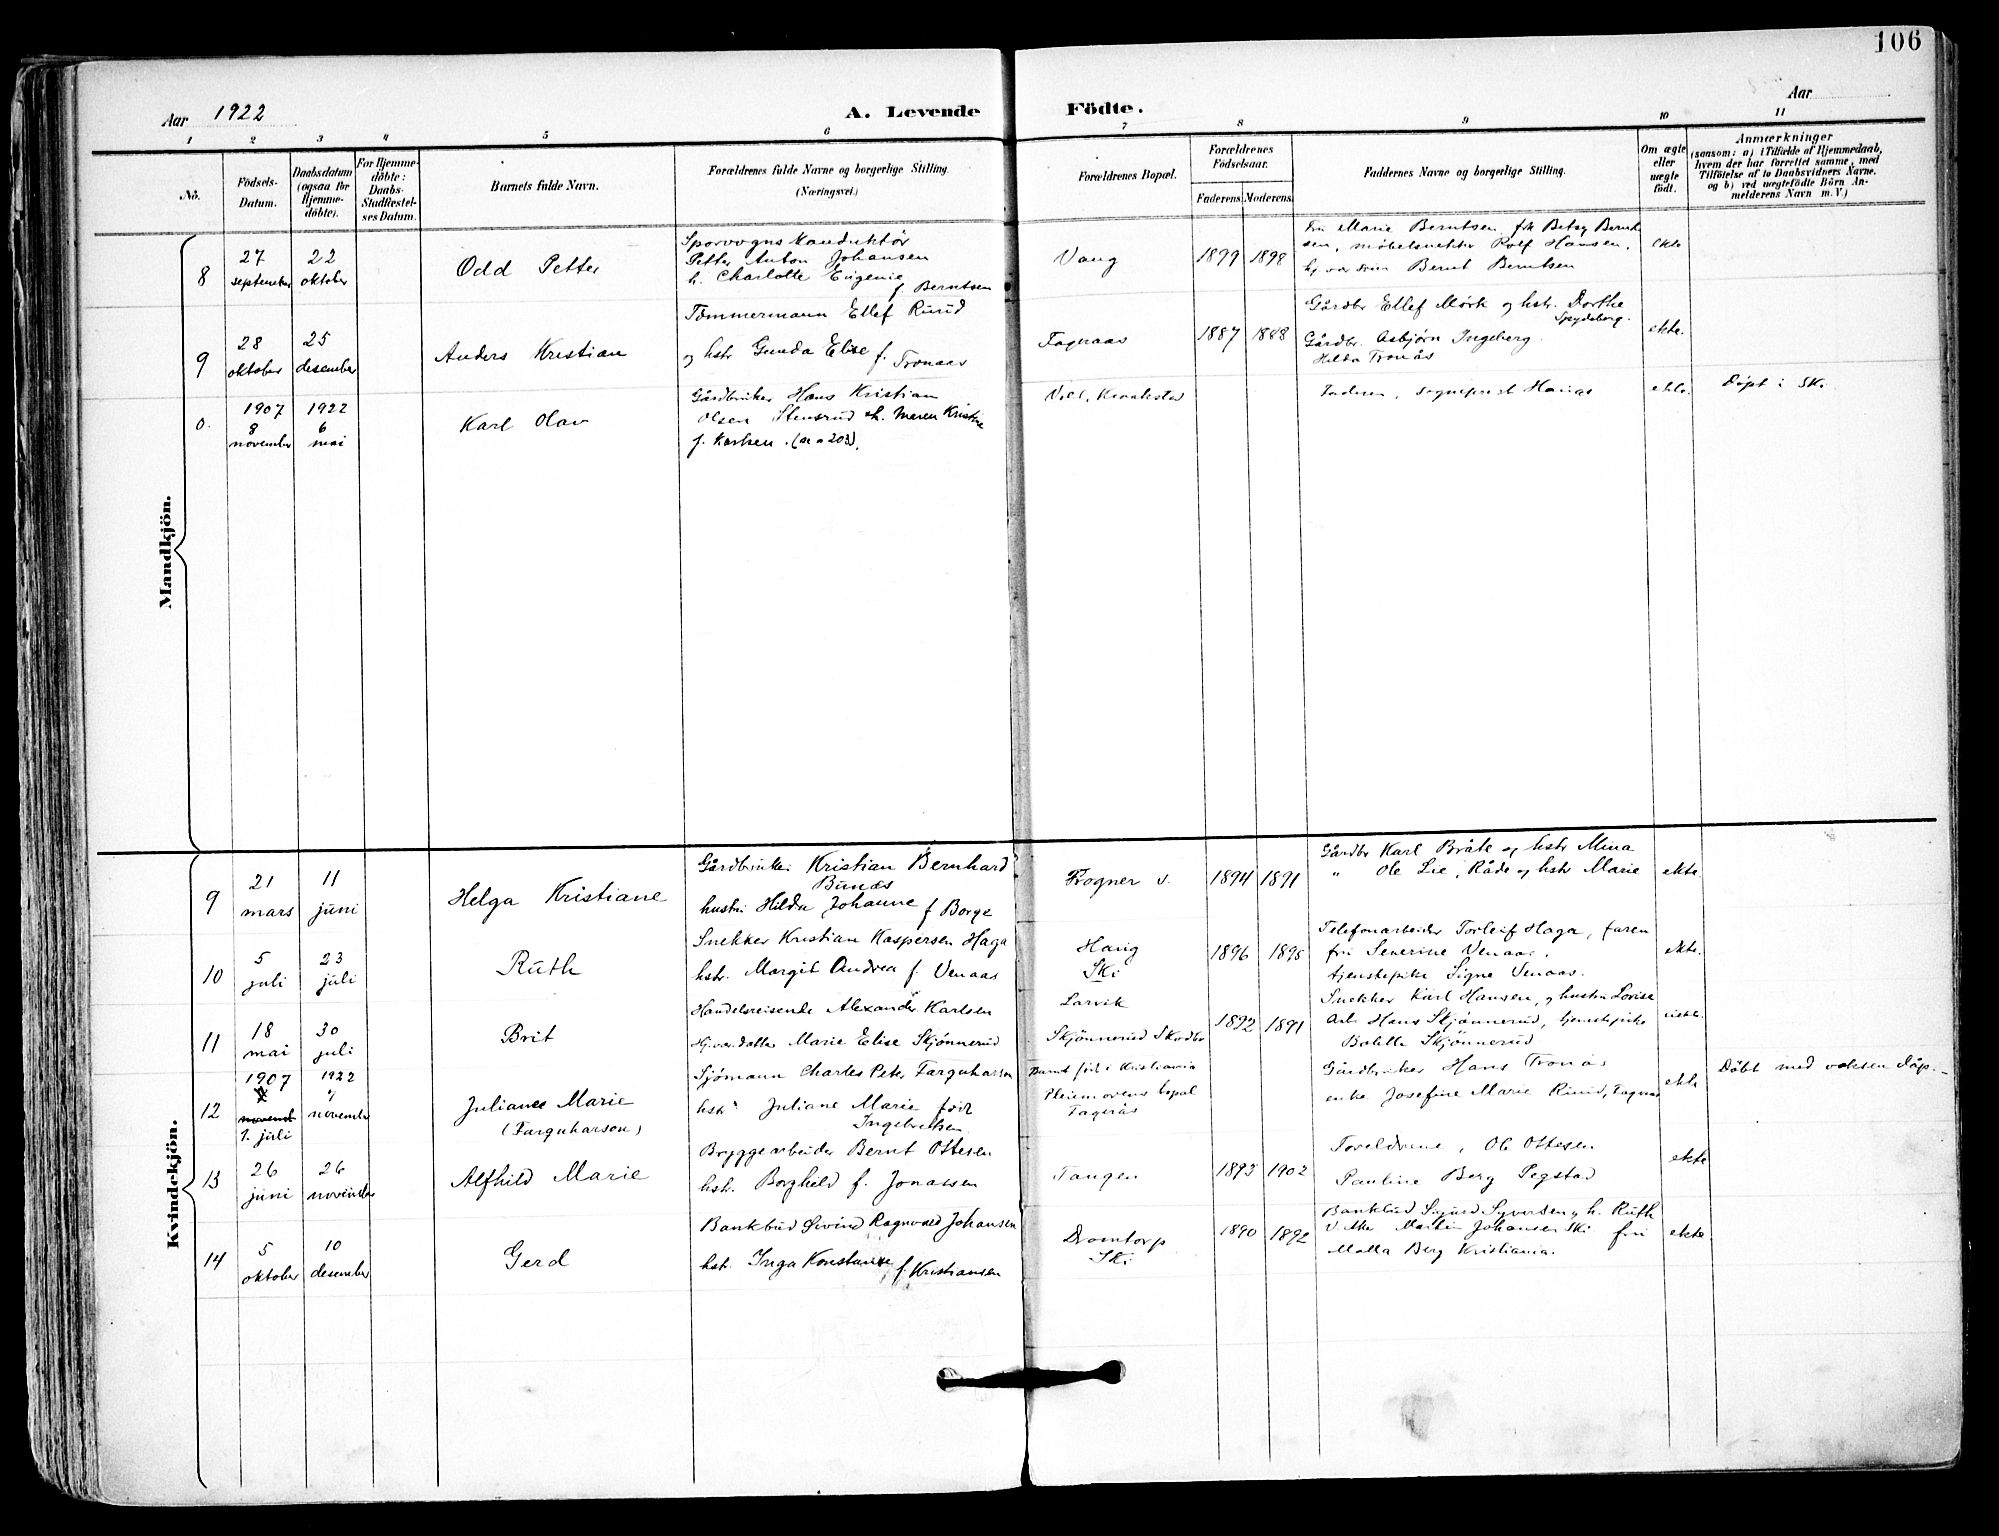 106
Aar 1922
A. Levende Födte.
Aar
1 2 3 4 5 6 7 8 9 10 11
No.
Födsels-
Datum.
Daabsdatum
(ogsaa for
Hjemme-
døbte).
For Hjemme-
døbte:
Daabs-
Stadfæstel-
ses Datum.
Barnets fulde Navn.
Forældrenes fulde Navne og borgerlige Stilling.
(Næringsvei.)
Forældrenes Bopæl.
Forældrenes
Födselsaar.
Faderens Moderens
Faddernes Navne og borgerlige Stilling.
Om ægte
eller
uægte
födt.
Anmærkninger
(saasom: a) i Tilfælde af Hjemmedaab,
hvem der har forrettet samme, med
Tilföielse af to Daabsvidners Navne,
og b) ved uægtefödte Börn An-
melderens Navn m. V.)
Mandkjön.
8
27
september
22
oktober
Odd Petter
Sporvognskonduktör
Petter Anton Johansen
h. Charlotte Eugenie
f. Berntsen
Vang
1899 1898
Fru Marie Berntsen, frk Betsy Bernt
sen, möbelsnekker Rolf Hansen,
Bernt Berntsen
ekte
9
28
oktober
25
desember
Anders Kristian
Tömmermann Ellef Ruud
og hstr Gunda Elise f. Tronaas
Fagraas
1887 1888
Gårdbr Ellef Mörk og hstr. Dorthe
Spydeberg.
Gårdbr. Asbjörn Ingeberg.
Hilda Tronås
ekte.
0.
1907
8
november
1922
6
mai
Karl Olav
Gårdbruker Hans Kristian
Olsen Stensrud h. Maren Kristine
f. Karlsen.
Kraakstad
sogneprest Hauge
ekte.
Döpt i Ski
Kvindekjön.
9
21
mars
11
juni
Helga Kristiane
Gårdbruker Kristian Bernhard
Bunæs
hustru Hilda Johanne f Borge
Frogner v.
1894 1891
Gårdbr Karl Bråte og hstr Mina
" Ole Lie, Råde og hstr Marie
ekte
10
5
juli
23
juli
Ruth
Snekker Kristian Kaspersen Haga
hstr. Margit Andrea f. Venaas
Haug
Ski
1896 1895
Telefonarbeider Torleif Haga, faren
fru Severine Venaas.
tjenstepike Signe Venaas.
ekte.
11
18
mai
30
juli
Brit
Handelsreisende Alexander Karlsen
Hj.vær. datter Marie Elise Skjönnerud
Larvik
Skjönnerud Skodbo
1892 1891
Snekker Karl Hansen, og hustru Lovise
Arb. Hans Skjönnerud, tjenstepike
Bolette Skjönnerud
12
1907
1. juli
1922
november
Juliane Marie
(Farquharson)
Sjömann Charles Peter Farquharson
hstr Juliane Marie född
Ingebretsen
Barnet född i Kristiania
Pleiemorens bopæl
Fagerås
Gårdbruker Hans Tronås
enke Josefine Marie Ruud, Fagraas
ekte
Döbt med voksen dåp.
13
26
juni
26
november
Alfhild Marie
Bryggearbeider Bernt Ottesen
hstr. Borghild f. Jonassen
Tangen
1893 1902
Foreldrene, Ole Ottesen
Pauline Berg Pegstad
ekte
14
5
oktober
10
desember
Gerd
Bankbud Øivind Ragnvald Johansen
hstr. Inga Konstanse f. Kristiansen
Dromtorp
Ski
1890 1892
Bankbud Sigurd Syversen og h. Ruth
Martin Johansen Ski fru
Malla Berg Kristiania.
ekte